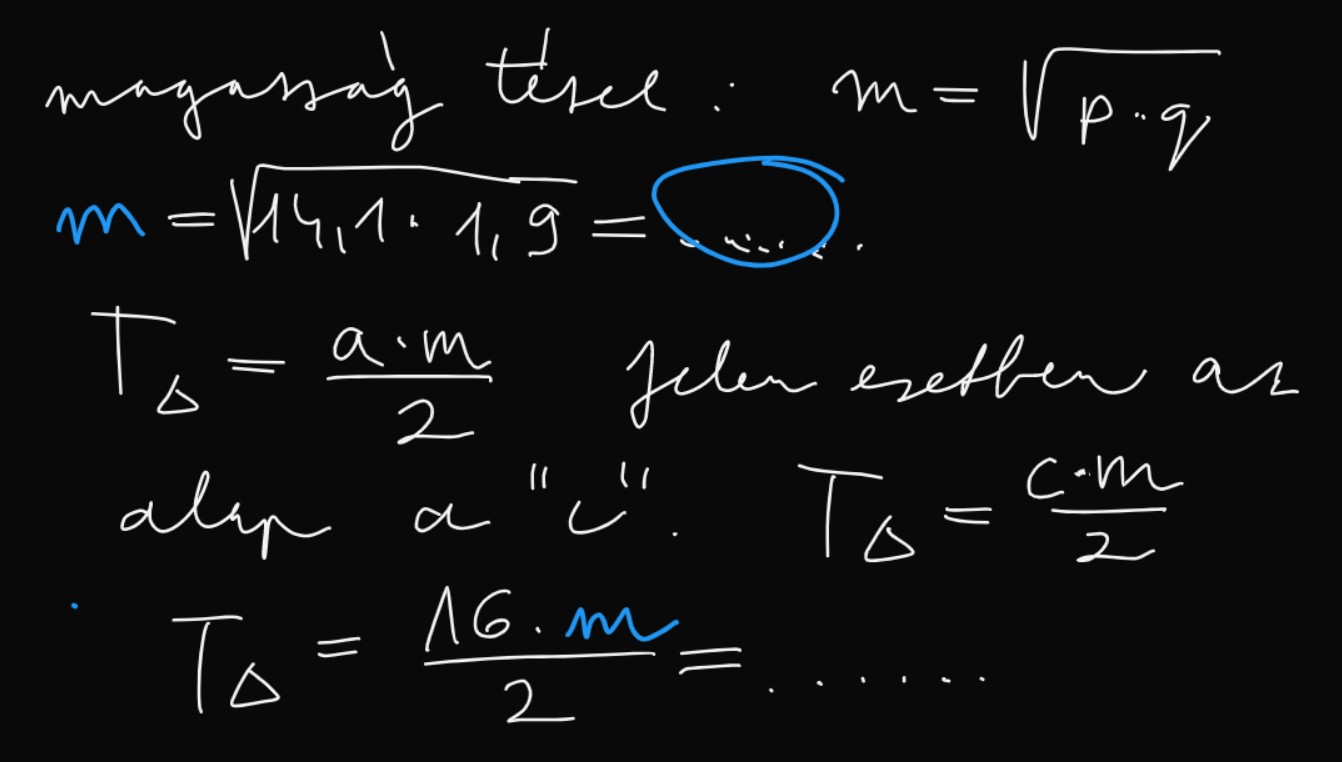 magasság tétel : m = √p·q
m = √14,1 · 1,9 = .......
T△ = a·m/2 Jelen esetben az
alap a "c". T△ = c·m/2
T△ = 16·m/2 = ......